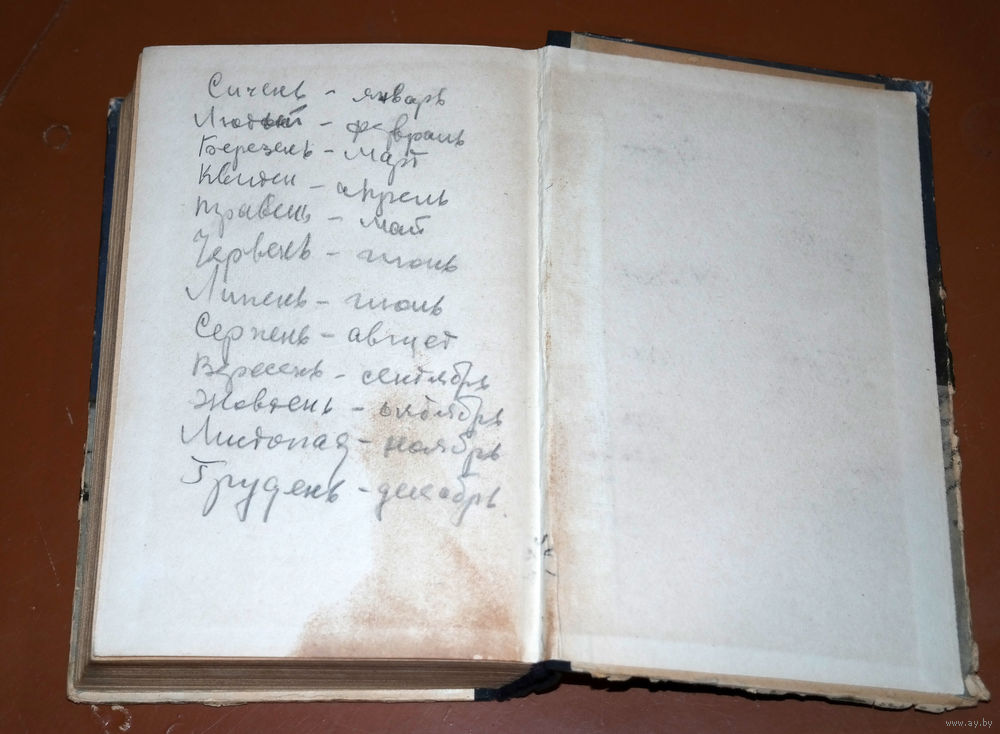 Сичень - январь
Лютый - февраль
Березень - март
Квитен - апрель
Травень - май
Червень - июнь
Липень - июль
Серпень - август
Вересень - сентябрь
Жовтень - октябрь
Листопад - ноябрь
Грудень - декабрь.
www.ay.by